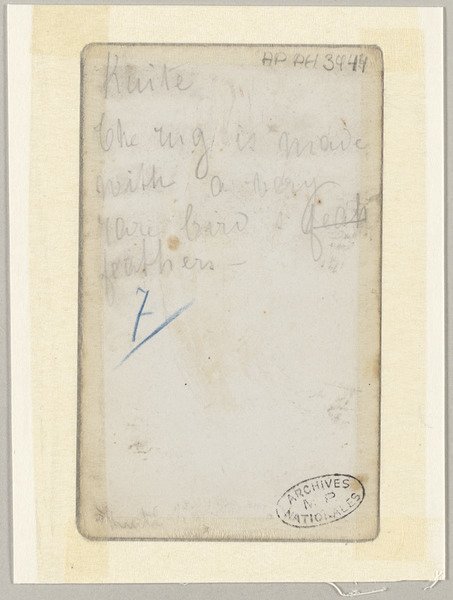 AP PH 3944
Knite
the rug is made
with a very
rare bird s feat
feathers —
7
ARCHIVES
M P
NATIONALES